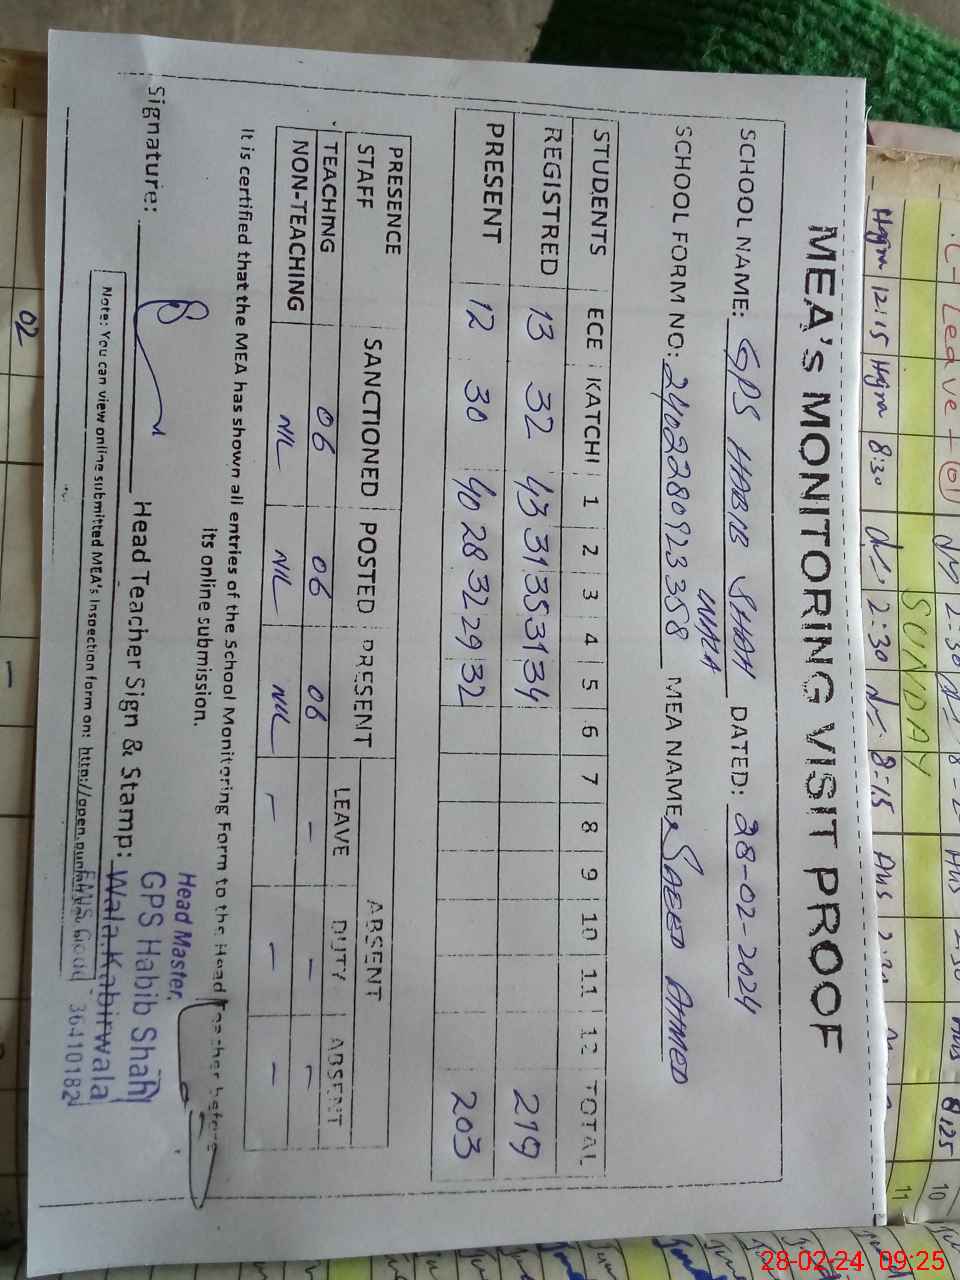 MEA's MONITORING VISIT PROOF
SCHOOL NAME: GPS HABIB SHAH WALA DATED: 28-02-2024
SCHOOL FORM NO: 2402280923358 MEA NAME: SAEED AHMED
STUDENTS ECE KATCHI 1 2 3 4 5 6 7 8 9 10 11 12 TOTAL
REGISTRED 13 32 43 31 35 31 34 219
PRESENT 12 30 40 28 32 29 32 203
PRESENCE STAFF SANCTIONED POSTED PRESENT ABSENT
LEAVE DUTY ABSENT
TEACHING 06 06 06 - - -
NON-TEACHING NIL NIL NIL - - -
It is certified that the MEA has shown all entries of the School Monitoring Form to the Head Teacher before
its online submission.
Signature: Head Teacher Sign & Stamp:
Head Master,
GPS Habib Shah
Wala Kabirwala
EMIS Code 36410182
Note: You can view online submitted MEA's Inspection form on:
C-Leave-01
SUNDAY
Hajra 12:15 Hajra 8:30
2:30
8-15
8:25
10
11
02
28-02-24 09:25